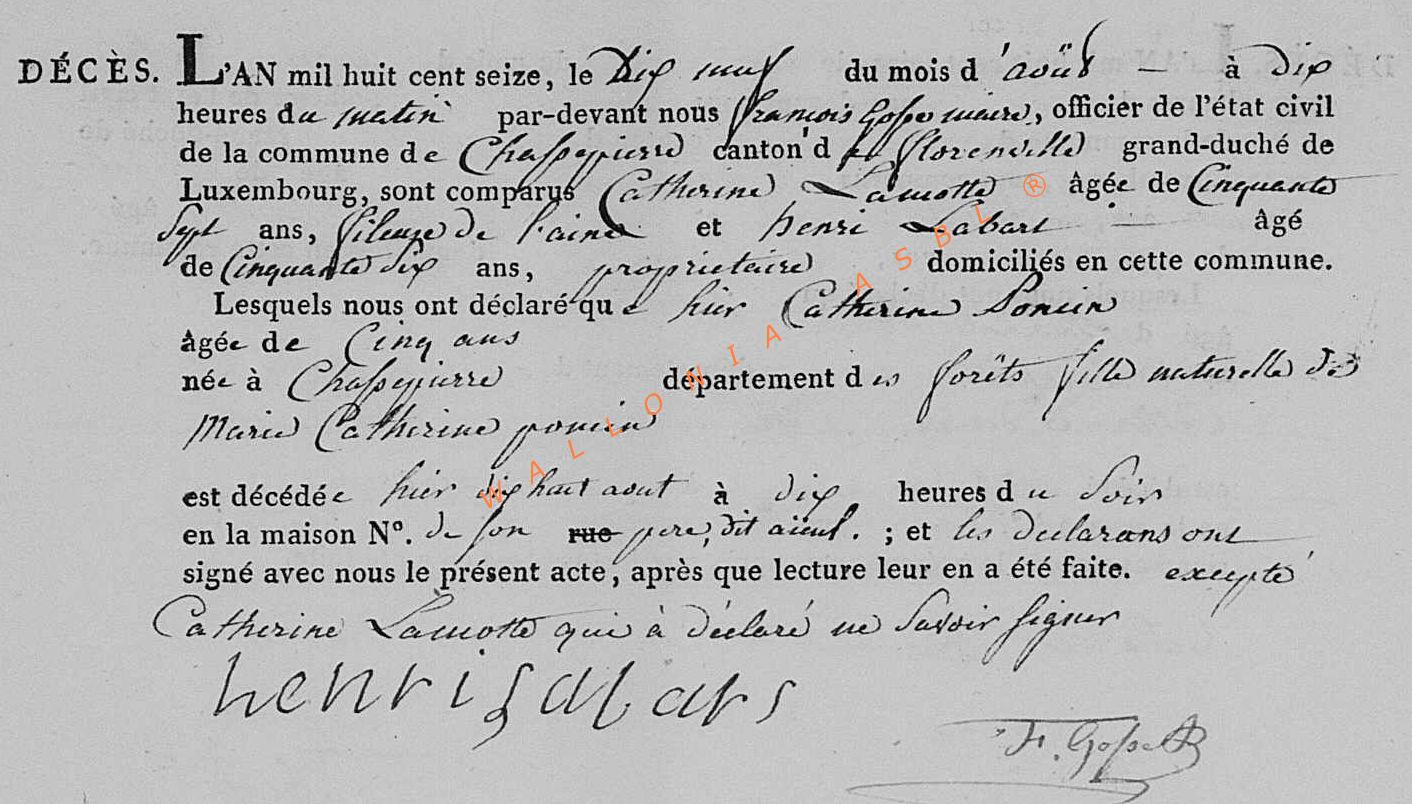 DÉCÈS. L'AN mil huit cent seize, le Dix neuf du mois d'août — à dix
heures du matin par-devant nous francois Gosse maire, officier de l'état civil
de la commune de Chassepierre canton de florenville grand-duché de
Luxembourg, sont comparus Catherine Lamotte âgée de Cinquante
Sept ans, fileuse de laine et henri — âgé
de Cinquante Six ans, proprietaire domiciliés en cette commune.
Lesquels nous ont déclaré que hier Catherine Poncin
âgée de Cinq ans
née à Chassepierre département des forêts fille naturelle de
Marie Catherine poncin
est décédée hier dix huit aout à dix heures du Soir
en la maison N°. de son rue pere, dit aieul. ; et les declarans ont
signé avec nous le présent acte, après que lecture leur en a été faite. excepté
Catherine Lamotte qui à déclaré ne Savoir signer
henri
F. Gosse
WALLONIA ASBL ®